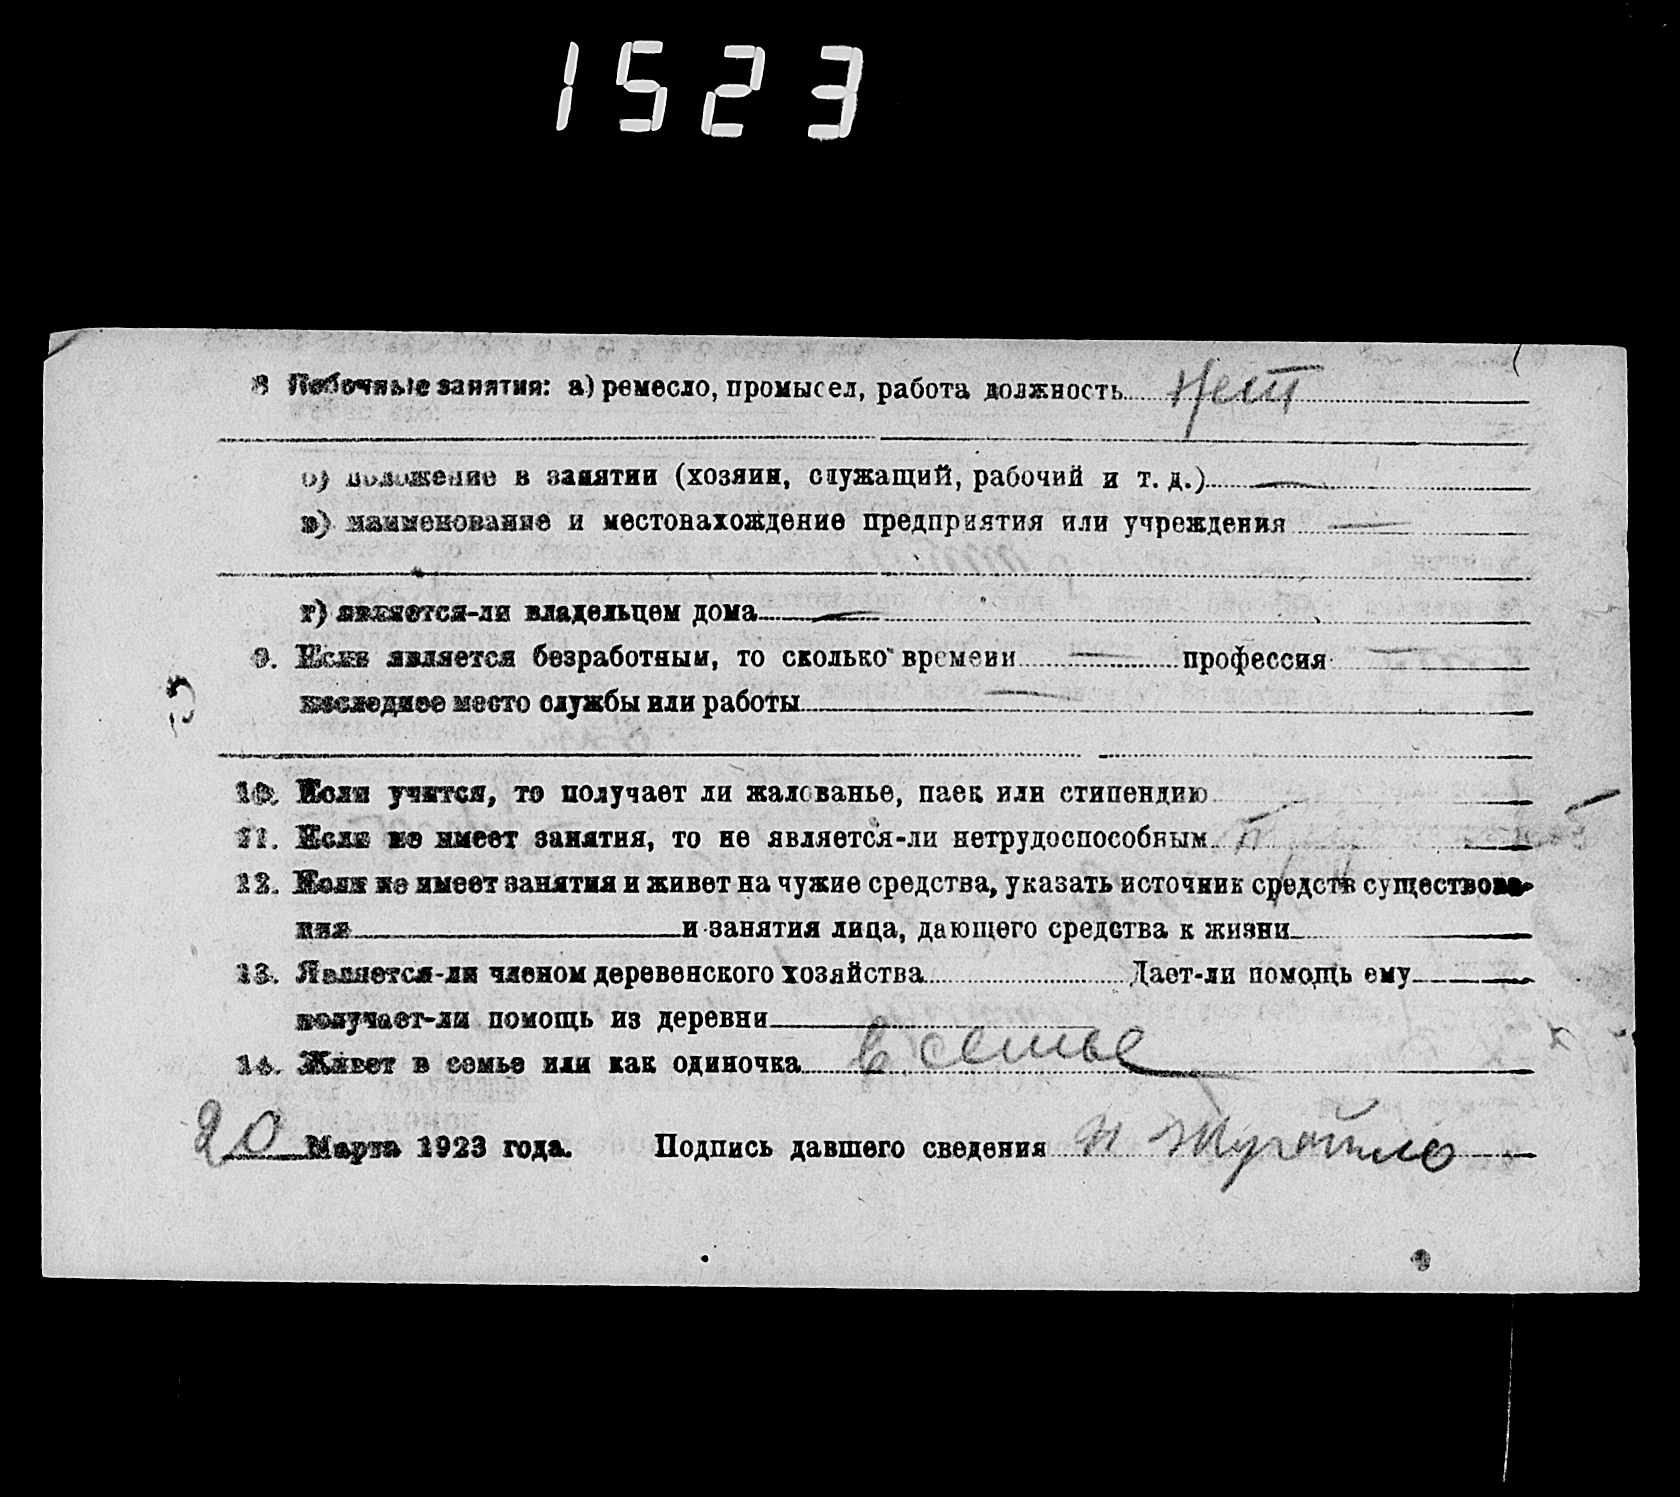 1523
8 Побочные занятия: а) ремесло, промысел, работа должность Нет
б) положение в занятии (хозяин, служащий, рабочий и т. д.) —
в) наименование и местонахождение предприятия или учреждения —
г) является-ли владельцем дома —
9. Если является безработным, то сколько времени — профессия —
последнее место службы или работы —
10. Если учится, то получает ли жалованье, паек или стипендию
11. Если не имеет занятия, то не является-ли нетрудоспособным
12. Если не имеет занятия и живет на чужие средства, указать источник средств существова-
ния и занятия лица, дающего средства к жизни
13. Является-ли членом деревенского хозяйства Дает-ли помощь ему
получает-ли помощь из деревни
14. Живет в семье или как одиночка в семье
20 Марта 1923 года. Подпись давшего сведения